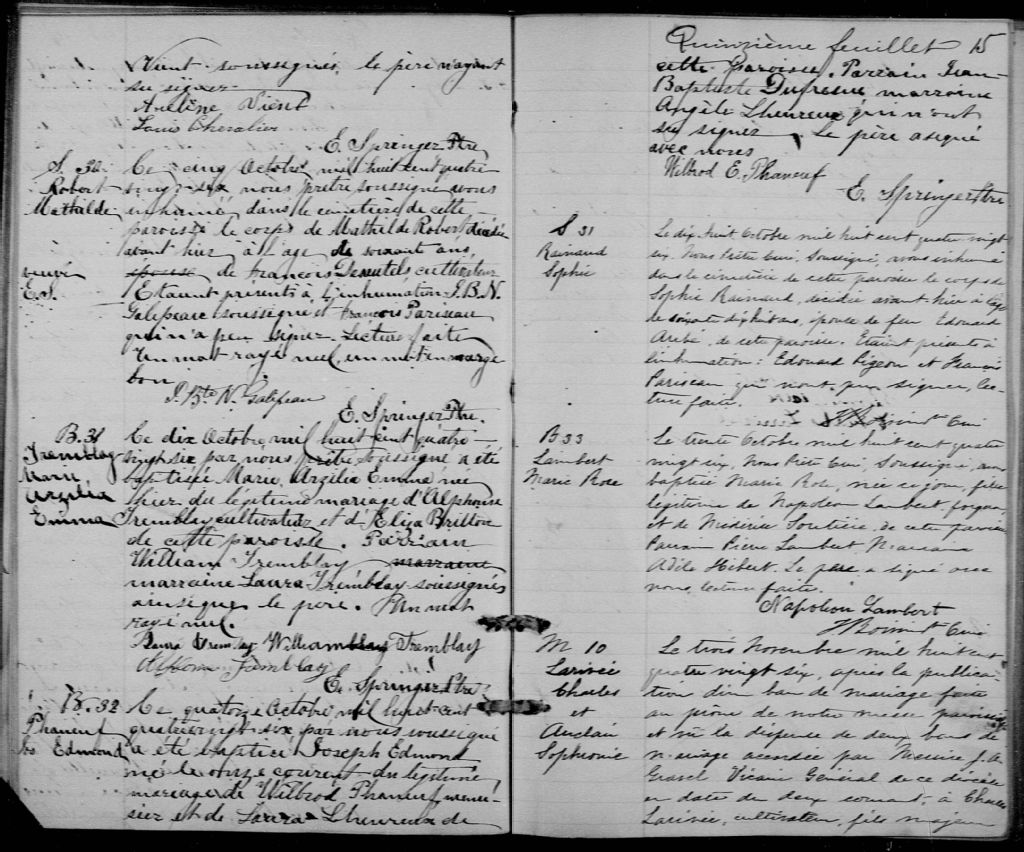 Vient soussignés, le père n'ayant
su signer.
Arélène Vient
Louis Chevalier
E. Springer Ptre
S. 30
Robert
Mathilde
Le cinq Octobre mil huit cent quatre
vingt-six nous prêtre soussigné avons
inhumé dans le cimetière de cette
paroisse le corps de Mathilde Robert décédée
avant hier à l'age de soixante ans,
veuve
E.S.
épouse de François Desautels cultivateur
Etaient présents à l'inhumation J.B.N.
Galipeau soussigné et François Pariseau
qui n'a pu signer. Lecture faite
Un mot rayé nul, un mot en marge
bon
J. Bte N. Galipeau
E. Springer Ptre.
B. 31
Tremblay
Marie,
Arzélia
Emma
Le dix Octobre mil huit cent quatre
vingt six par nous prêtre soussigné a été
baptisée Marie, Arzélia Emma née
hier du légitime mariage d'Alphonse
Tremblay cultivateur et d'Eliza Britton
de cette paroisse. Parrain
William Tremblay marraine
marraine Laura Tremblay soussignés
ainsi que le père. Un mot
rayé nul.
Laura Tremblay William Tremblay
Alphonse Tremblay
E. Springer Ptre
B. 32
Phaneuf
Edmond
Le quatorze Octobre mil huit-cent
quatrevingt-six par nous soussigné
a été baptisé Joseph Edmond
né le onze courant du légitime
mariage de Wilbrod Phaneuf, menui-
sier et de Laura Lheureux de
Quinzième feuillet 15
cette paroisse. Parrain Jean-
Baptiste Dufresne marraine
Angèle Lheureux qui n'ont
su signer. Le père a signé
avec nous
Wilbrod E. Phaneuf
E. Springer Ptre
S 31
Rainaud
Sophie
Le dix huit Octobre mil huit cent quatre vingt
six, Nous Prêtre Curé, Soussigné, avons inhumé
dans le cimetière de cette paroisse le corps de
Sophie Rainaud, décédée avant hier à l'age
de soixante dix huit ans, épouse de feu Edouard
de cette paroisse. Etaient présents à
l'inhumation: Edouard Pigeon et François
Pariseau qui n'ont pu signer, lec-
ture faite.
Curé
B 33
Lambert
Marie Rose
Le trente Octobre mil huit cent quatre
vingt six, Nous Prêtre Curé, Soussigné, avons
baptisé Marie Rose, née ce jour, fille
légitime de Napoléon Lambert, forgeron,
et de Médérise Loutière de cette paroisse
Parrain Pierre Lambert Marraine
Adèle Hébert. Le père a signé avec
nous, lecture faite.
Napoléon Lambert
Curé
M 10
Larivée
Charles
et
Auclair
Sophronie
Le trois Novembre mil huit cent
quatre vingt six, après la publica-
tion d'un ban de mariage faite
au prône de notre messe paroissiale
et vu la dispense de deux bans de
mariage accordée par Messire J. A.
Gravel Vicaire Général de ce diocèse
en date du deux courant, à Charles
Larivée, cultivateur, fils majeur